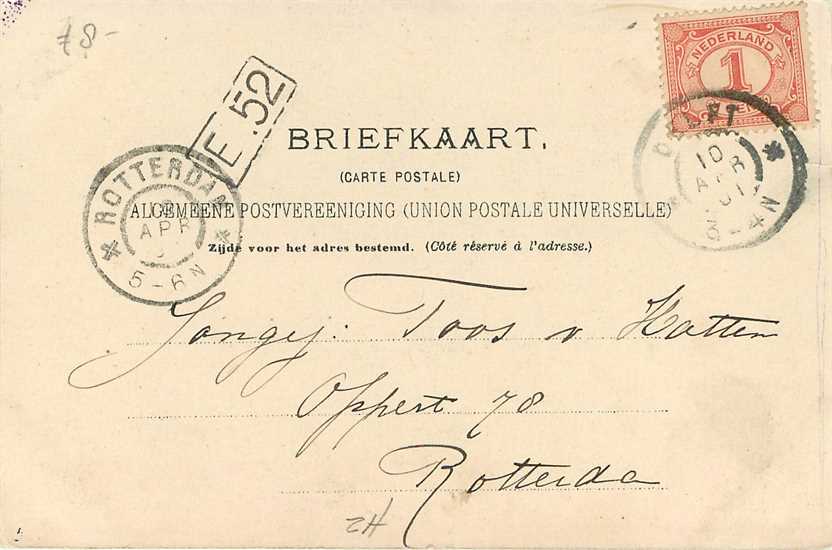 78-
NEDERLAND
1
CENT
E.52
DELFT
10
APR
01
3-4 N
BRIEFKAART.
(CARTE POSTALE)
ALGEMEENE POSTVEREENIGING (UNION POSTALE UNIVERSELLE)
Zijde voor het adres bestemd. (Côté réservé à l'adresse.)
ROTTERDAM
APR
5-6N
Jongej: Toos v Hatten
Oppert 78
Rotterda